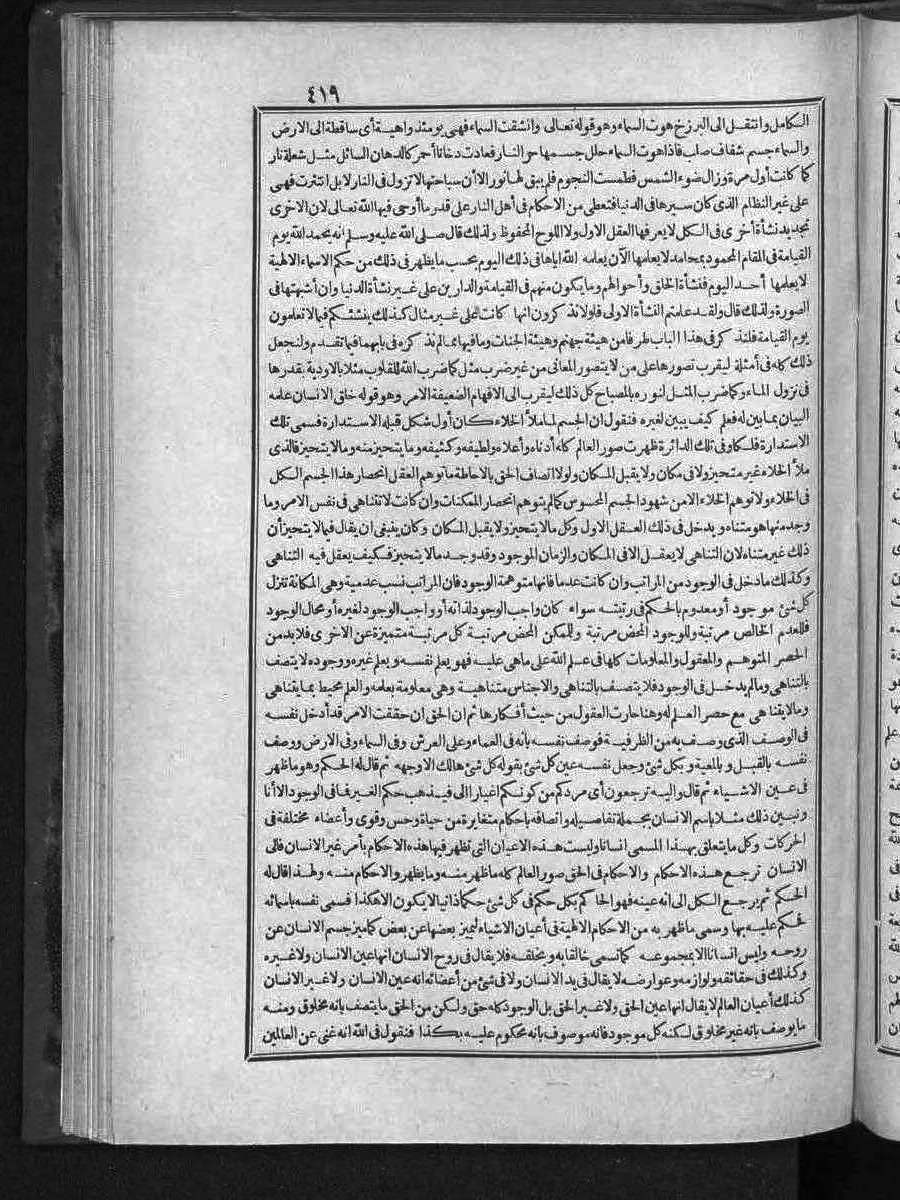 ٤١٩
الكامل وانتقل الى البرزخ هوت السماء وهو قوله تعالى وانشقت السماء فهى يومئذ واهية أى ساقطة الى الارض
والسماء جسم شفاف صلب فاذا هوت السماء حلل جسمها حر النار فعادت دخانا أحر كالدهان السائل مثل شعلة نار
كما كانت أول مرة وزال ضوء الشمس فطمست النجوم فلم يبق لها نور الا أن سباحتها لا تزول فى النار لا بل انتثرت فهى
على غير النظام الذى كان سيرها فى الدنيا فتعطى من الاحكام فى أهل النار على قدر ما أوحى فيها الله تعالى لان الاخرى
تجديد نشأة أخرى فى الكل لا يعرفها العقل الاول ولا اللوح المحفوظ ولذلك قال صلى الله عليه وسلم انه يحمد الله يوم
القيامة فى المقام المحمود بمحامد لا يعلمها الآن يعلمه الله اياها فى ذلك اليوم بحسب ما يظهر فى ذلك من حكم الاسماء الالهية
لا يعلمها أحد اليوم فنشأة الخلق وأحوالهم وما يكون منهم فى القيامة والدارين على غير نشأة الدنيا وان أشبهتها فى
الصورة ولذلك قال ولقد علمتم النشأة الاولى فلولا تذكرون انها كانت على غير مثال كذلك ينشئكم فيما لا تعلمون
يوم القيامة فلنذكر فى هذا الباب طرفا من هيئة جهنم وهيئة الجنات وما فيها مما لم نذكره فى بابهما فيما تقدم ولنجعل
ذلك كله فى أمثلة ليقرب تصورها على من لا يتصور المعانى من غير ضرب مثل كما ضرب الله للقلوب مثلا بالاودية بقدرها
فى نزول الماء وكما ضرب المثل لنوره بالمصباح كل ذلك ليقرب الى الافهام الضعيفة الامر وهو قوله خلق الانسان علمه
البيان بما بين له فعلم كيف يبين لغيره فنقول ان الجسم لما ملأ الخلاء كان أول شكل قبله الاستدارة فسمى تلك
الاستدارة فلكا وفى تلك الدائرة ظهرت صور العالم كله أدناه وأعلاه ولطيفه وكثيفه وما يتحيز منه وما لا يتحيز فالذى
ملأ الخلاء غير متحيز ولا فى مكان ولا يقبل المكان ولولا اتصاف الحق بالاحاطة ما توهم العقل انحصار هذا الجسم الكل
فى الخلاء ولا توهم الخلاء الا من شهود الجسم المحسوس كما لم يتوهم انحصار الممكنات وان كانت لا تتناهى فى نفس الامر وما
وجد منها هو متناه ويدخل فى ذلك العقل الاول وكل ما لا يتحيز ولا يقبل المكان وكان ينبغى ان يقال فيما لا يتحيز أن
ذلك غير متناه لان التناهى لا يعقل الا فى المكان والزمان الموجود وقد وجد ما لا يتحيز فكيف يعقل فيه التناهى
وكذلك ما دخل فى الوجود من المراتب وان كانت عدما فانها متوهمة الوجود فان المراتب نسب عدمية وهى المكانة تنزل
كل شئ موجود أو معدوم بالحكم فى رتبته سواء كان واجب الوجود لذاته أو واجب الوجود لغيره أو محال الوجود
فللعدم الخالص مرتبة وللوجود المحض مرتبة وللممكن المحض مرتبة كل مرتبة متميزة عن الاخرى فلا بد من
الحصر المتوهم والمعقول والمعلومات كلها فى علم الله على ما هى عليه فهو يعلم نفسه ويعلم غيره ووجوده لا يتصف
بالتناهى وما لم يدخل فى الوجود فلا يتصف بالتناهى والاجناس متناهية وهى معلومة بعلمه والعلم محيط بما يتناهى
وما لا يتناهى مع حصر العلم له وهنا حارت العقول من حيث أفكارها ثم ان الحق ان حققت الامر قد أدخل نفسه
فى الوصف الذى وصف به من الظرفية فوصف نفسه بأنه فى العماء وعلى العرش وفى السماء وفى الارض ووصف
نفسه بالقبل وبالمعية وبكل شئ وجعل نفسه عين كل شئ بقوله كل شئ هالك الا وجهه ثم قال له الحكم وهو ما ظهر
فى عين الاشياء ثم قال واليه ترجعون أى مردكم من كونكم اغيارا الى فيذهب حكم الغير فما فى الوجود الا أنا
ونبين ذلك مثلا باسم الانسان بجملة تفاصيله واتصافه باحكام متغايرة من حياة وحس وقوى وأعضاء مختلفة فى
الحركات وكل ما يتعلق بهذا المسمى انسانا وليست هذه الاعيان التى تظهر فيها هذه الاحكام بأمر غير الانسان فالى
الانسان ترجع هذه الاحكام والاحكام فى الحق صور العالم كله ما ظهر منه وما يظهر والاحكام منه ولهذا قال له
الحكم ثم يرجع الكل الى انه عينه فهو الحاكم بكل حكم فى كل شئ حكما ذاتيا لا يكون الا هكذا فسمى نفسه باسمائه
فحكم عليه بها وسمى ما ظهر به من الاحكام الالهية فى أعيان الاشياء ليميز بعضها عن بعض كما ميز جسم الانسان عن
روحه وليس انسانا الا بمجموعه كما تسمى خالقا به وبخلقه فلا يقال فى روح الانسان انها عين الانسان ولا غيره
وكذلك فى حقائقه ولوازمه وعوارضه لا يقال فى يد الانسان ولا فى شئ من أعضائه انه عين الانسان ولا غير الانسان
كذلك أعيان العالم لا يقال انها عين الحق ولا غير الحق بل الوجود كله حق ولكن من الحق ما يتصف بانه مخلوق ومنه
ما يوصف بانه غير مخلوق لكنه كل موجود فانه موصوف بانه محكوم عليه بكذا فنقول فى الله انه غنى عن العالمين